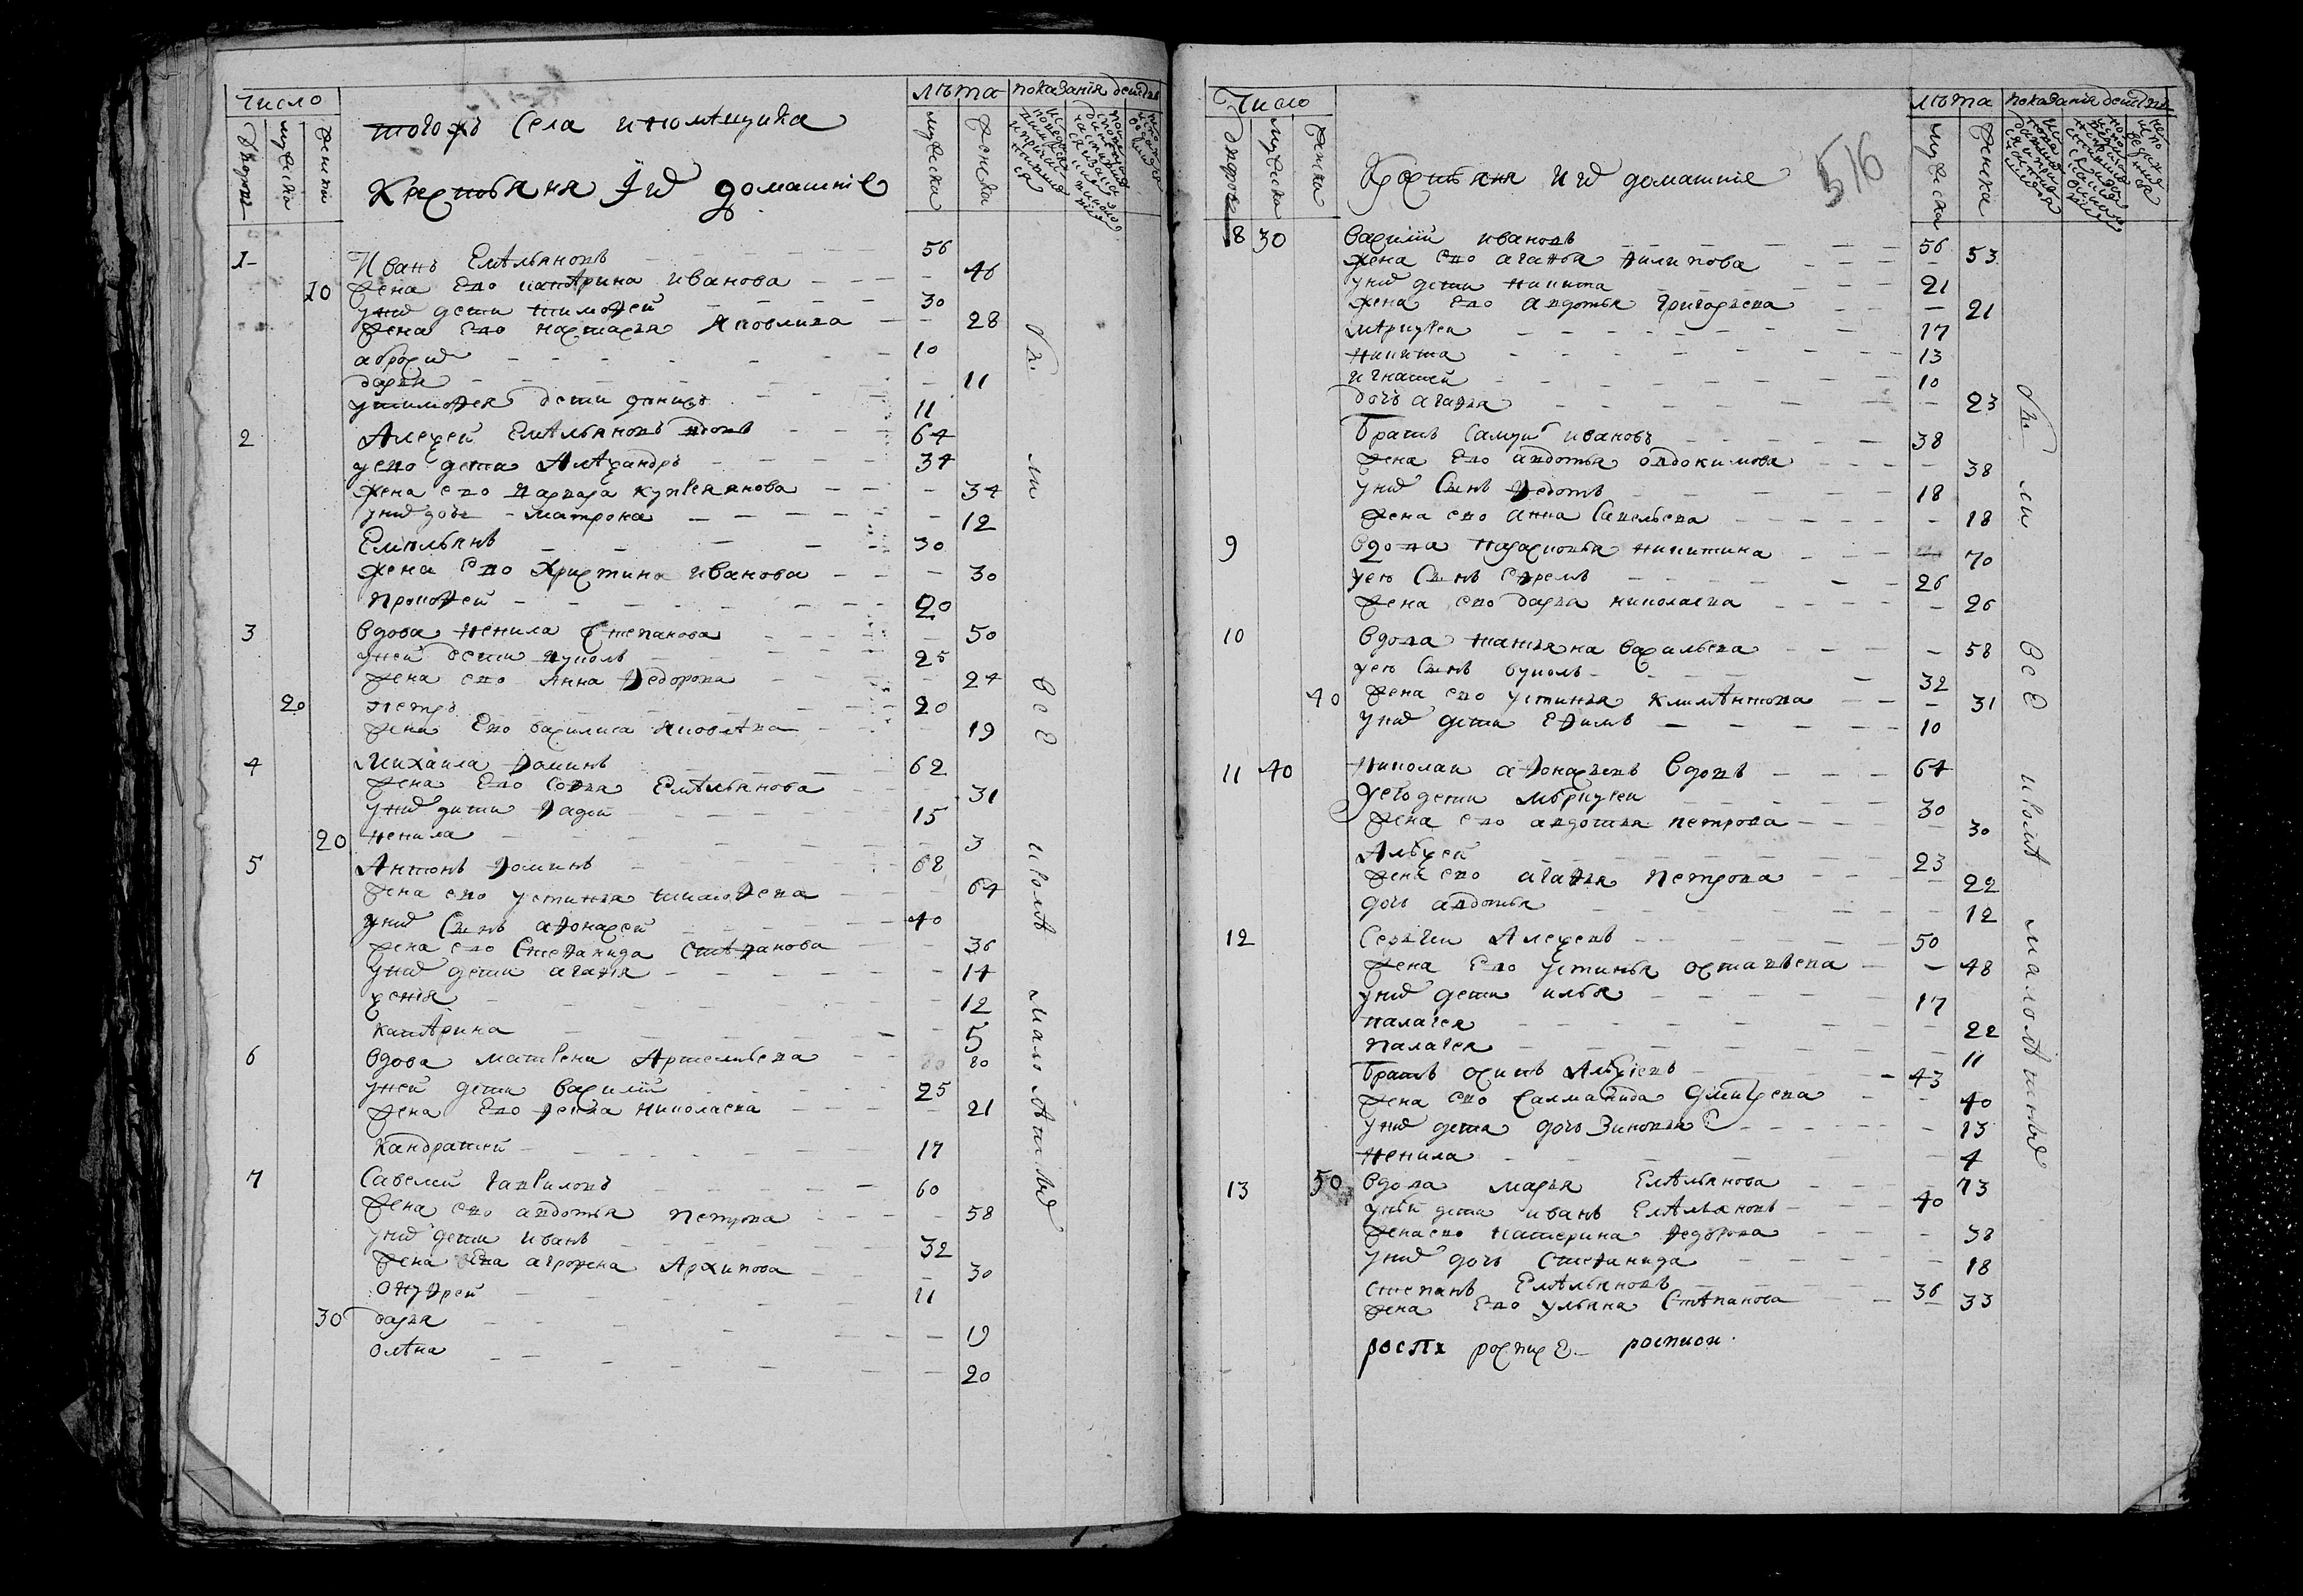 Число
лѣта показанія
дворовъ
мужеска
женска
мужеска
женска
тогожъ села и помѣщика
Крестьяня и ихъ домашніе
1 Иванъ Емѣльяновъ 56
жена ево катѣрина иванова 46
10 у нихъ дети тимофей 30
жена ево настасья яковлива 28
аброси 10
дарья 11
у тимофея дети 11
2 Алексей Емѣльяновъ вдовъ 64
у ево дети Алѣксандръ 34
жена ево варвара куприянова 34
у них дочь матрона 12
Емельянъ 30
жена ево христина иванова 30
прокофей 20
3 вдова ненила степанова 50
у ней дети вуколъ 25
жена ево анна федорова 24
20 петръ 20
жена ево василиса яковлѣва 19
4 михаила фоминъ 62
жена ево софья емѣльянова 31
у них дети фадей 15
20 ненила 3
5 Антонъ фоминъ 68
жена ево устинья тимофева 64
у них сынъ афонасей 40
жена ево стефанида стѣпанова 36
у них дети агафья 14
ксения 12
катѣрина 5
6 вдова матрена артемьева 80
у ней дети василій 25
жена ево фекла николаева 21
кандратей 17
7 Савелей гавриловъ 60
жена ево авдотья петрова 58
у них дети иванъ 32
жена ева агрофена архипова 30
онуфрей 11
30 дарья 19
олѣна 20
были все исполѣ малолѣтныя
Число
лѣта показанія
дворовъ
мужеска
женска
мужеска
женска
Крестьяня и их домашніе
516
8 30 василій ивановъ 56
жена ево агафья филипова 53
у них дети никита 21
жена ево авдотья григорьева 21
мѣркулей 17
никита 13
игнатей 10
дочь агафья 23
братъ самуи ивановъ 38
жена ево авдотья овдокимова 38
у них сынъ федотъ 18
жена ево анна савельева 18
9 вдова парасковья никитина 70
у ею сынъ ефремъ 26
жена ево дарья николаева 26
10 вдова татьяна васильева 58
у ею сынъ вуколъ 32
40 жена ево устинья климѣнтова 31
у них дети ефимъ 10
11 40 николаи афонасьевъ вдовъ 64
у ево дети мѣркулеи 30
жена ево авдотья петрова 30
Алѣксей 23
жена ево агафья петрова 22
дочь авдотья 12
12 Сергии Алексевъ 50
жена ево устинья остафьева 48
у них дети илья 17
палагея 22
палагея 11
братъ осипъ алѣксіевъ 43
жена ево саламанида дмитрева 40
у них дети дочь зиновья 13
ненила 4
13 50 вдова марья емѣльянова 73
у ней дети иванъ емѣльяновъ 40
жена ево катерина федорова 38
у них дочь стефанида 18
степанъ емѣльяновъ 36
жена ево ульяна стѣпанова 33
роспх роспис росписи
были все исполѣ малолѣтныя